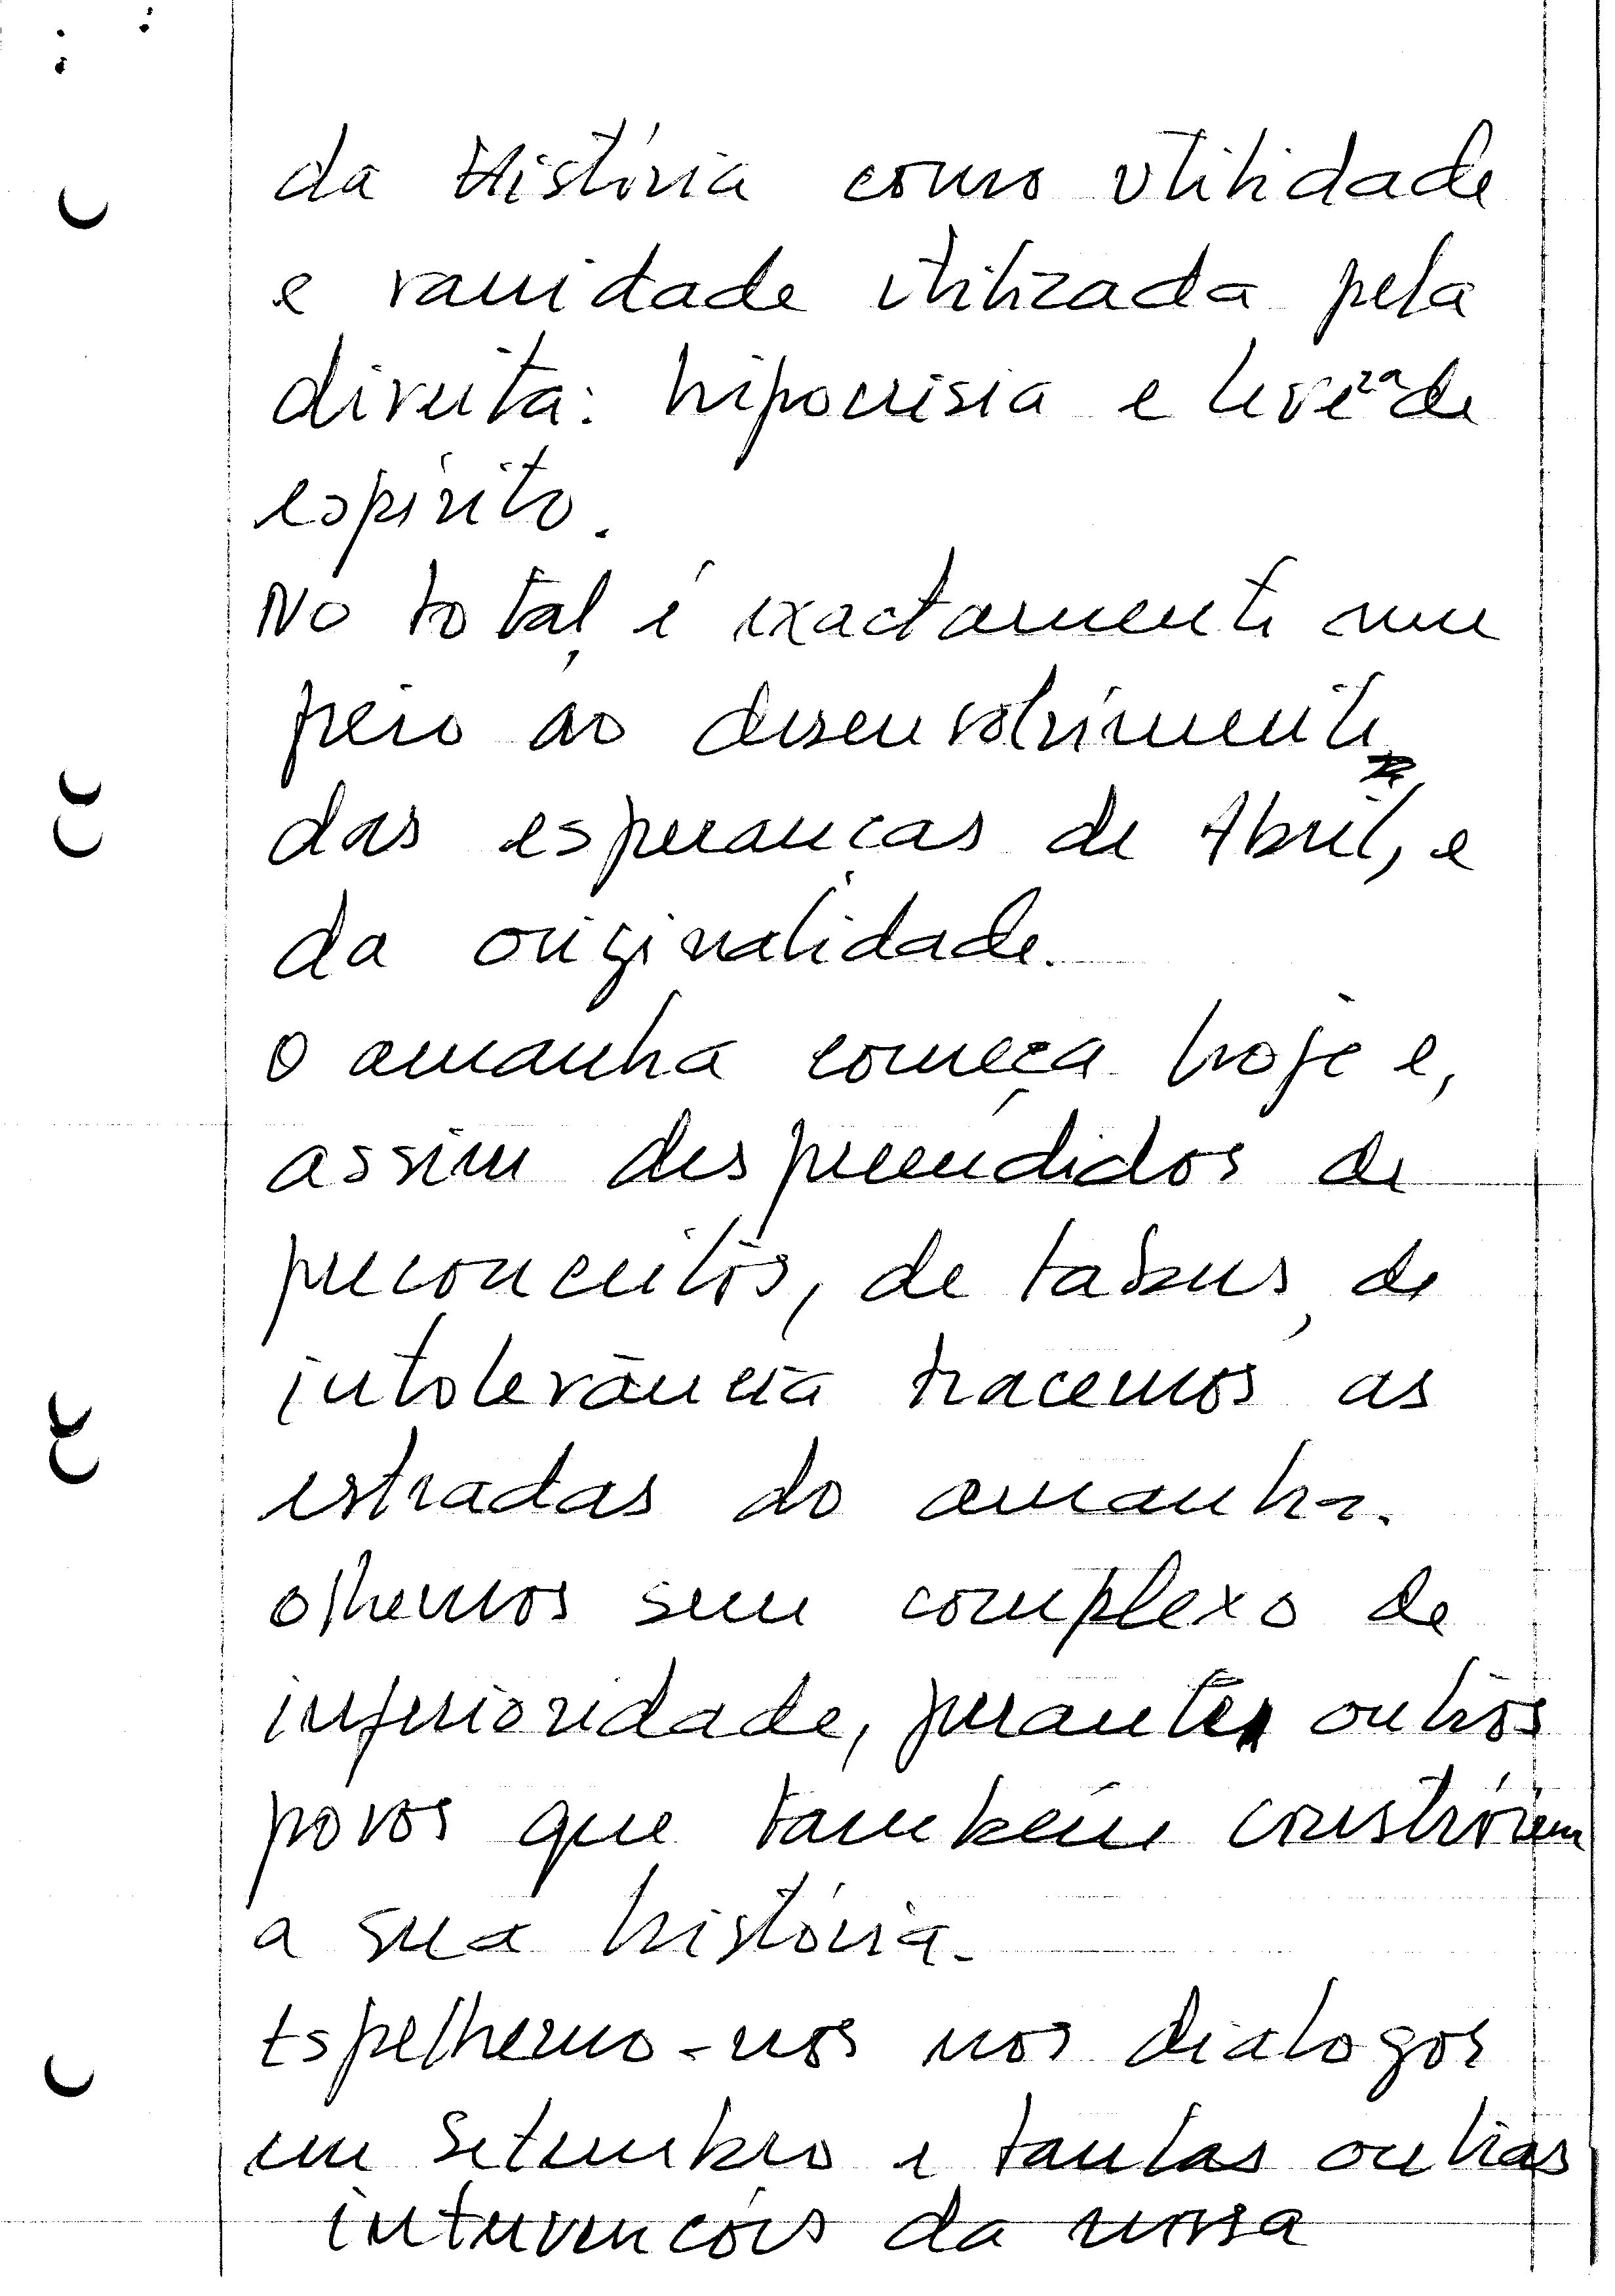 da História como utilidade
e vanidade utilizada pela
direita: hipocrisia e leveza de
espírito.
No total, é exactamente um
freio ao desenvolvimento
das esperanças de Abril, e
da originalidade.
O amanha começa hoje e,
assim desprendidos de
preconceitos, de tabus, de
intolerância tracemos as
estradas do amanha.
Olhemos sem complexo de
inferioridade, perante outros
povos que também constróiem
a sua história.
Espelhemo-nos nos dialogos
em Setembro e tantas outras
intervençóes da nossa